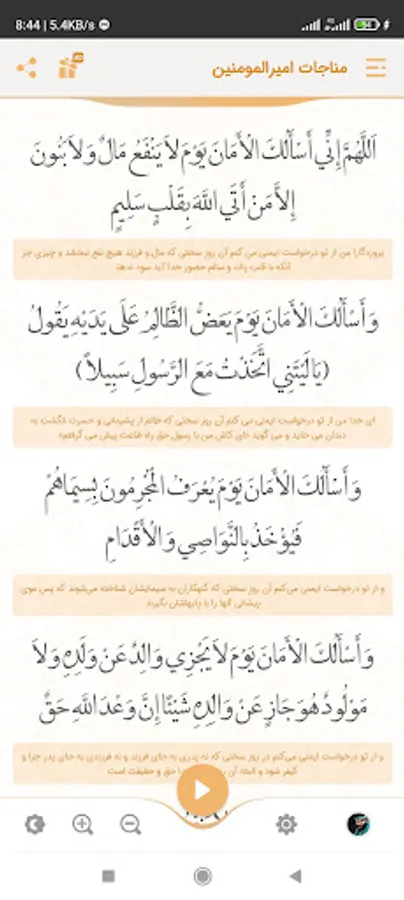 8:44 | 5.4KB/s
64
مناجات امیرالمومنین
AD
اَللَّهُمَّ إِنِّي أَسْأَلُكَ الْأَمَانَ يَوْمَ لاَ يَنْفَعُ مَالٌ وَلاَ بَنُونَ
إِلاَّ مَنْ أَتَي اللَّهَ بِقَلْبٍ سَلِيمٍ
پروردگارا من از تو درخواست ایمنی می کنم آن روز سختی که مال و فرزند هیچ نفع نبخشد و چیزی جز
آنکه با قلب پاک و سالم حضور خدا آید سود ندهد
وَ أَسْأَلُكَ الْأَمَانَ يَوْمَ يَعَضُّ الظَّالِمُ عَلَى يَدَيْهِ يَقُولُ
(يَا لَيْتَنِي اتَّخَذْتُ مَعَ الرَّسُولِ سَبِيلاً)
ای خدا من از تو درخواست ایمنی می کنم آن روز سختی که ظالم از پشیمانی و حسرت انگشت به
دندان می خاید و می گوید «ای کاش من با رسول حق راه طاعت پیش می گرفتم»
وَ أَسْأَلُكَ الْأَمَانَ يَوْمَ يُعْرَفُ الْمُجْرِمُونَ بِسِيمَاهُمْ
فَيُؤْخَذُ بِالنَّوَاصِي وَ الْأَقْدَامِ
و از تو درخواست ایمنی می‌کنم آن روز سختی که گنهکاران به سیمایشان شناخته می‌شوند که پس موی
پیشانی آنها را با پاهاشان بگیرند
وَ أَسْأَلُكَ الْأَمَانَ يَوْمَ لاَ يَجْزِي وَالِدٌ عَنْ وَلَدِهِ وَلاَ
مَوْلُودٌ هُوَ جَازٍ عَنْ وَالِدِهِ شَيْئًا إِنَّ وَعْدَ اللَّهِ حَقٌّ
و از تو درخواست ایمنی می‌کنم در روز سختی که نه پدری به جای فرزند و نه فرزندی به جای پدر جزا و
کیفر شود و البته آن حق و حقیقت است